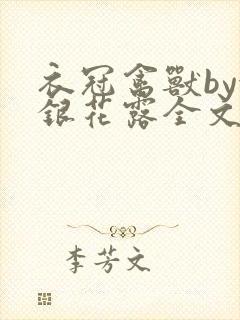 衣冠禽獸by
銀花露全文
李芳文